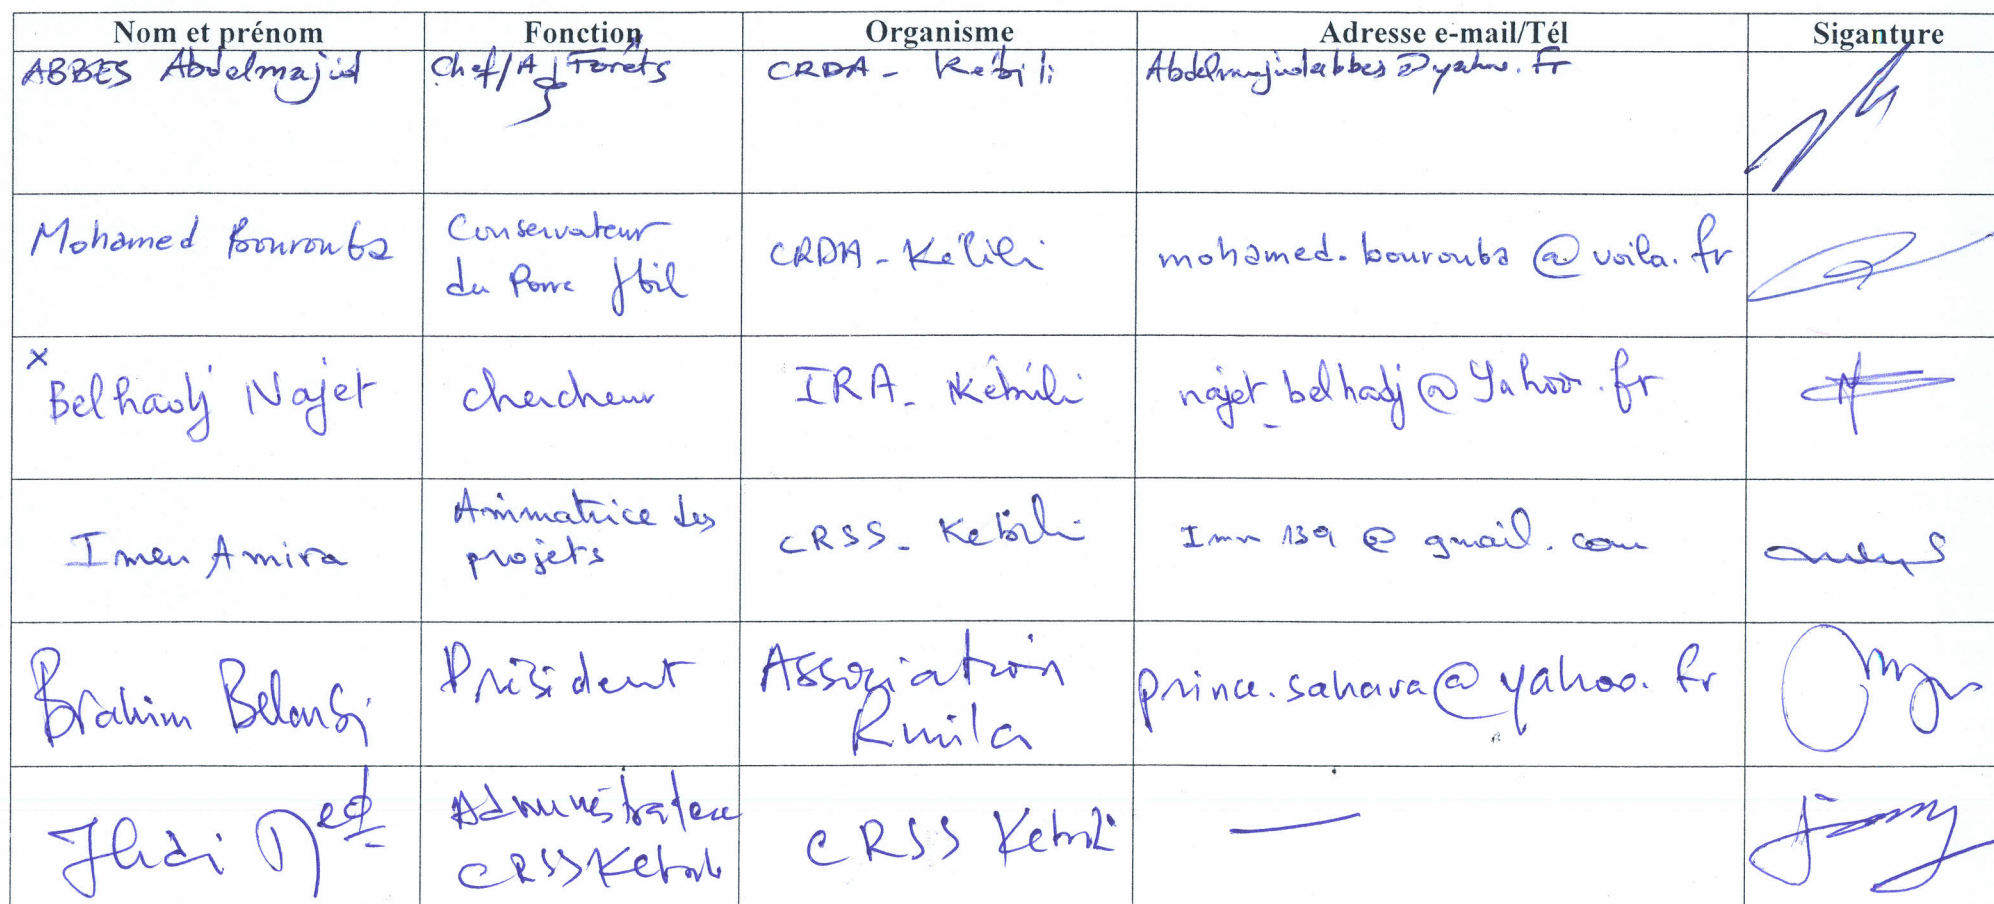 Nom et prénom Fonction Organisme Adresse e-mail/Tél Siganture
ABBES Abdelmajid Chef/Ad Forêts CRDA - Kébili Abdelmajidabbes@yahoo.fr
Mohamed Bourouba Conservateur CRDA - Kébili mohamed.bourouba@voila.fr
du Parc Jbil
x
Belhadj Najet chercheur IRA - Kébili najet_belhadj@Yahoo.fr
Imen Amira Animatrice des CRSS - Kebili Imn 139 @ gmail.com
projets
Brahim Président Association prince.sahara@yahoo.fr
Rmila
Jhidi Med Administrateur CRSS Kebili —
CRSS Kebili